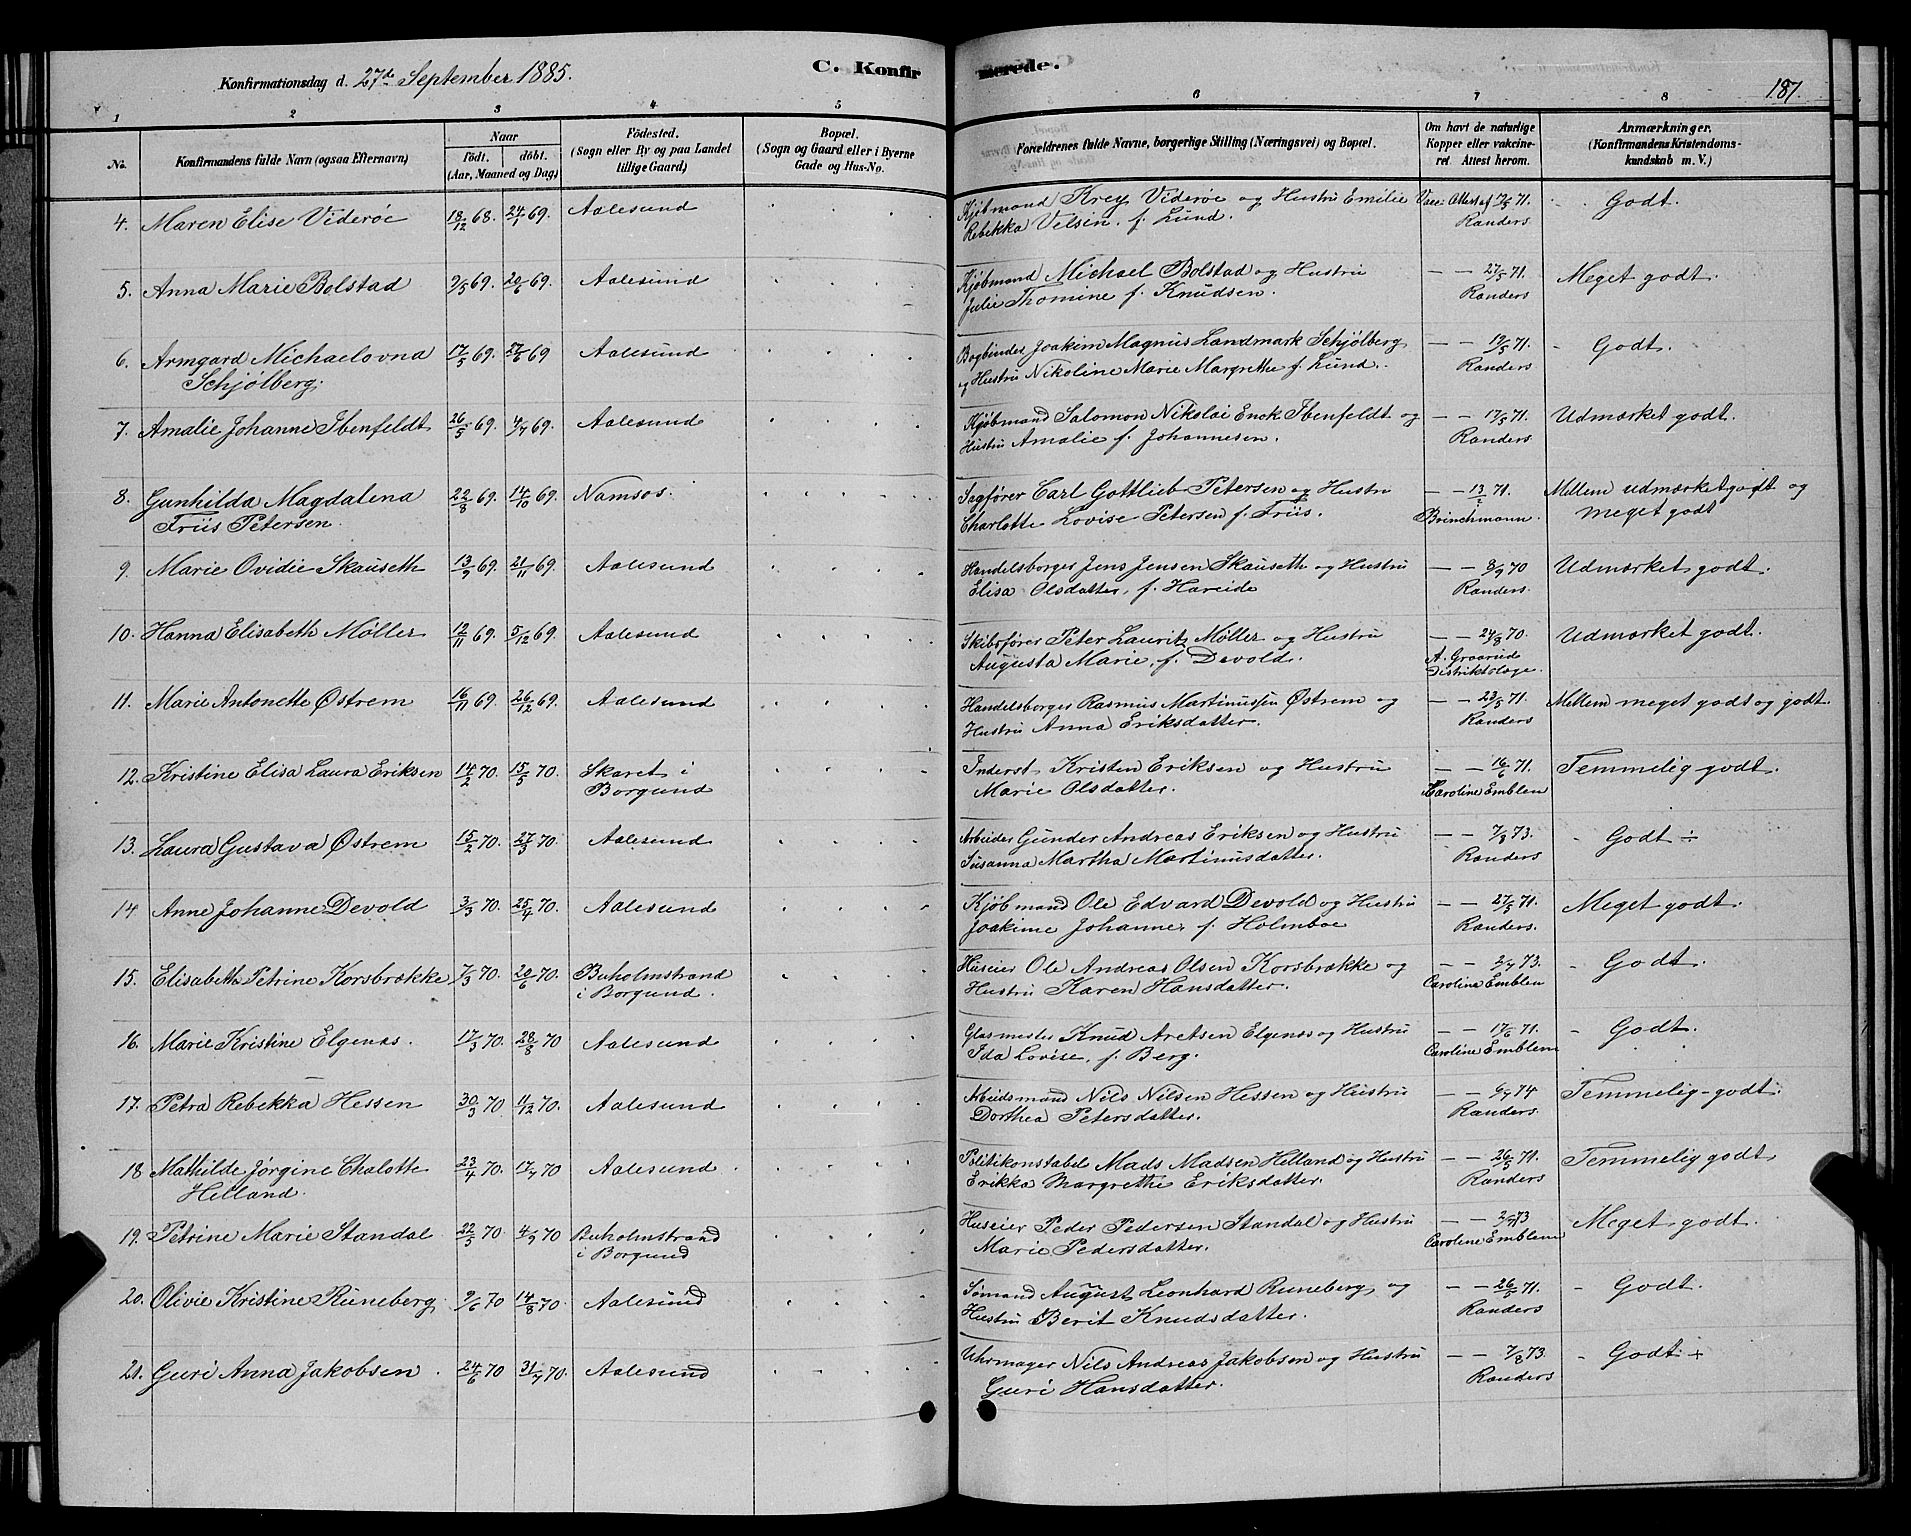 Konfirmationsdag d. 27de September 1885.
C. Konfirmerede.
187.
1 2 3 4 5 6 7 8
No.
Konfirmandens fulde Navn (ogsaa Efternavn)
Naar
födt. döbt.
(Aar, Maaned og Dag)
Födested.
(Sogn eller By og paa Landet
tillige Gaard)
Bopæl.
(Sogn og Gaard eller i Byerne
Gade og Hus-No.
Forældrenes fulde Navne, borgerlige Stilling (Næringsvei) og Bopæl.
Om havt de naturlige
Kopper eller vakcine-
ret. Attest herom.
Anmærkninger.
(Konfirmandens Kristendoms-
kundskab m. V.)
4. Maren Elise Viderøe 18/12 68. 24/1 69. Aalesund Kjøbmand Krey Viderøe og Hustru Emilie Vacc. Attest af 19/5 71. Godt.
Rebekka Velsin. f. Lund. Randers
5. Anna Marie Bolstad 9/5 69. 20/6 69. Aalesund Kjøbmand Michael Bolstad og Hustru — — 27/5 71. Meget godt.
Julie Thomine f. Knudsen. Randers
6. Armgard Michaelovna 17/5 69. 27/6 69 Aalesund Bogbinder Joakim Magnus Landmark Schjølberg — — 19/5 71. Godt.
Schjølberg. og Hustru Nikoline Marie Margrethe f. Lund. Randers
7. Amalie Johanne Ibenfeldt 26/5 69. 4/7 69. Aalesund Kjøbmand Salomon Nikolai Enck Ibenfeldt og — — 17/5 71. Udmærket godt.
Hustru Amalie f. Johannesen. Randers
8. Gunhilda Magdalena 22/8 69. 14/10 69. Namsos. Sagfører Carl Gottlieb Petersen og Hustru — — 13/2 71. Mellem udmærket godt og
Friis Petersen. Charlotte Lovise Petersen f. Friis. Brinchmann. meget godt
9. Marie Ovidie Skauseth 13/9 69. 21/11 69. Aalesund Handelsborger Jens Jensen Skauseth og Hustru — — 8/9 70 Udmærket godt.
Elisa Olsdatter, f. Hareide Randers.
10. Hanna Elisabeth Møller 12/11 69. 5/12 69. Aalesund Skibsfører Peter Laurits Møller og Hustru — — 24/8 70. Udmærket godt.
Augusta Marie, f. Devold. A. Graarud
Distriktslæge.
11. Marie Antonette Østrem 16/11 69. 26/12 69. Aalesund Handelsborger Rasmus Martinussen Østrem og — — 23/5 71. Mellem meget godt og godt.
Hustru Anna Eriksdatter. Randers
12. Kristine Elisa Laura Eriksen 14/2 70. 15/5 70. Skaret i Inderst Kristen Eriksen og Hustru — — 16/6 71. Temmelig godt.
Borgund Marie Olsdatter. Caroline Emblem
13. Laura Gustava Østrem 15/2 70. 27/3 70. Aalesund Arbeider Gunder Andreas Eriksen og Hustru — — 7/8 73. Godt ÷
Susanna Martha Martinusdatter. Randers
14 Anne Johanne Devold 3/3 70. 25/4 70. Aalesund Kjøbmand Ole Edvard Devold og Hustru — — 27/5 71. Meget godt.
Joakime Johanne, f. Holmboe Randers.
15. Elisabeth Petrine Korsbrække 7/3 70. 20/6 70. Buholmstrand Huseier Ole Andreas Olsen Korsbrække og — — 2/7 73. Godt.
i Borgund. Hustru Karen Hansdatter. Caroline Emblem
16. Marie Kristine Elgenæs. 17/3 70. 28/8 70 Aalesund Glasmester Knud Aretsen Elgenæs og Hustru — — 17/6 71. Godt.
Ida Lovise, f. Berg. Caroline Emblem
17. Petra Rebekka Hessen 30/3 70 11/12 70. Aalesund Arbeidsmand Nils Nilsen Hessen og Hustru — — 6/7 74 Temmelig-godt.
Dorthea Petersdatter. Randers
18 Mathilde Jørgine Chalotte 23/4 70. 17/7 70 Aalesund Politikonstabel Mads Madsen Helland og Hustru — — 26/5 71. Temmelig godt.
Helland. Erikka Margrethe Eriksdatter. Randers
19. Petrine Marie Standal 22/5 70. 4/9 70 Buholmstrand Huseier Peder Pedersen Standal og Hustru — — 2/7 73 Meget godt.
i Borgund Marie Pedersdatter. Caroline Emblem
20. Olivie Kristine Runeberg 9/6 70 14/8 70. Aalesund Sømand August Leonhard Runeberg og — — 26/5 71. Godt.
Hustru Berit Knudsdatter. Randers
21. Guri Anna Jakobsen 24/6 70 31/7 70. Aalesund Uhrmager Nils Andreas Jakobsen og Hustru — — 7/8 73. Godt ÷
Guri Hansdatter. Randers